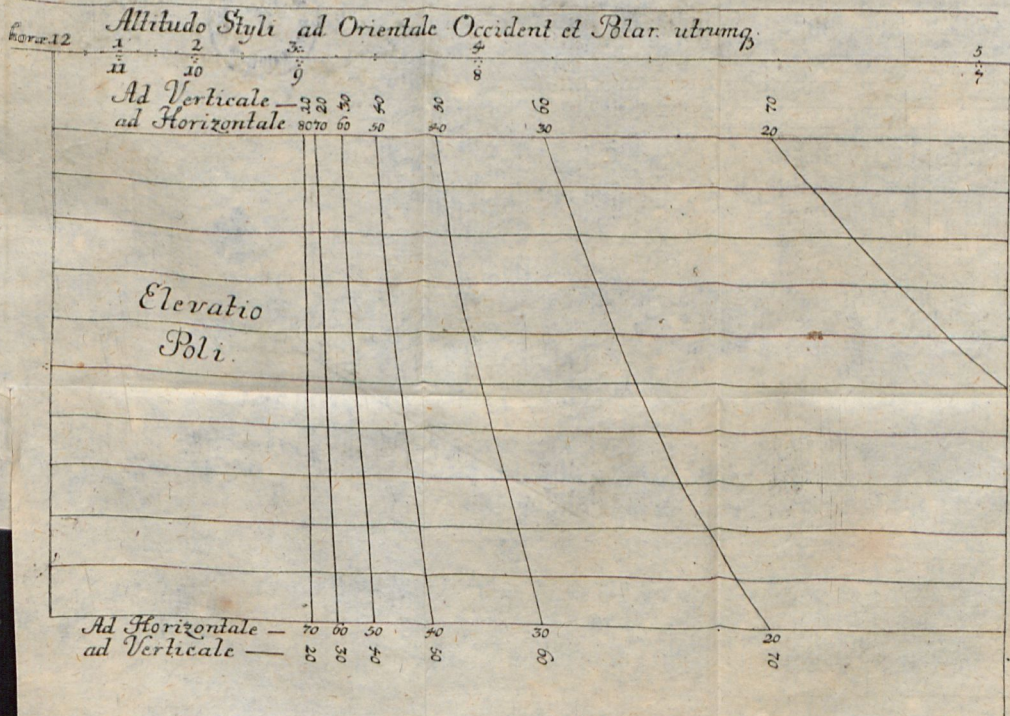 Altitudo Styli ad Orientale Occident et Polar. utrumq3
horæ.12 1 2 3 4 5
11 10 9 8 7
Ad Verticale — 10 20 30 40 50 60 70
ad Horizontale 80 70 60 50 40 30 20
Elevatio
Poli.
Ad Horizontale — 70 60 50 40 30 20
ad Verticale — 20 30 40 50 60 70